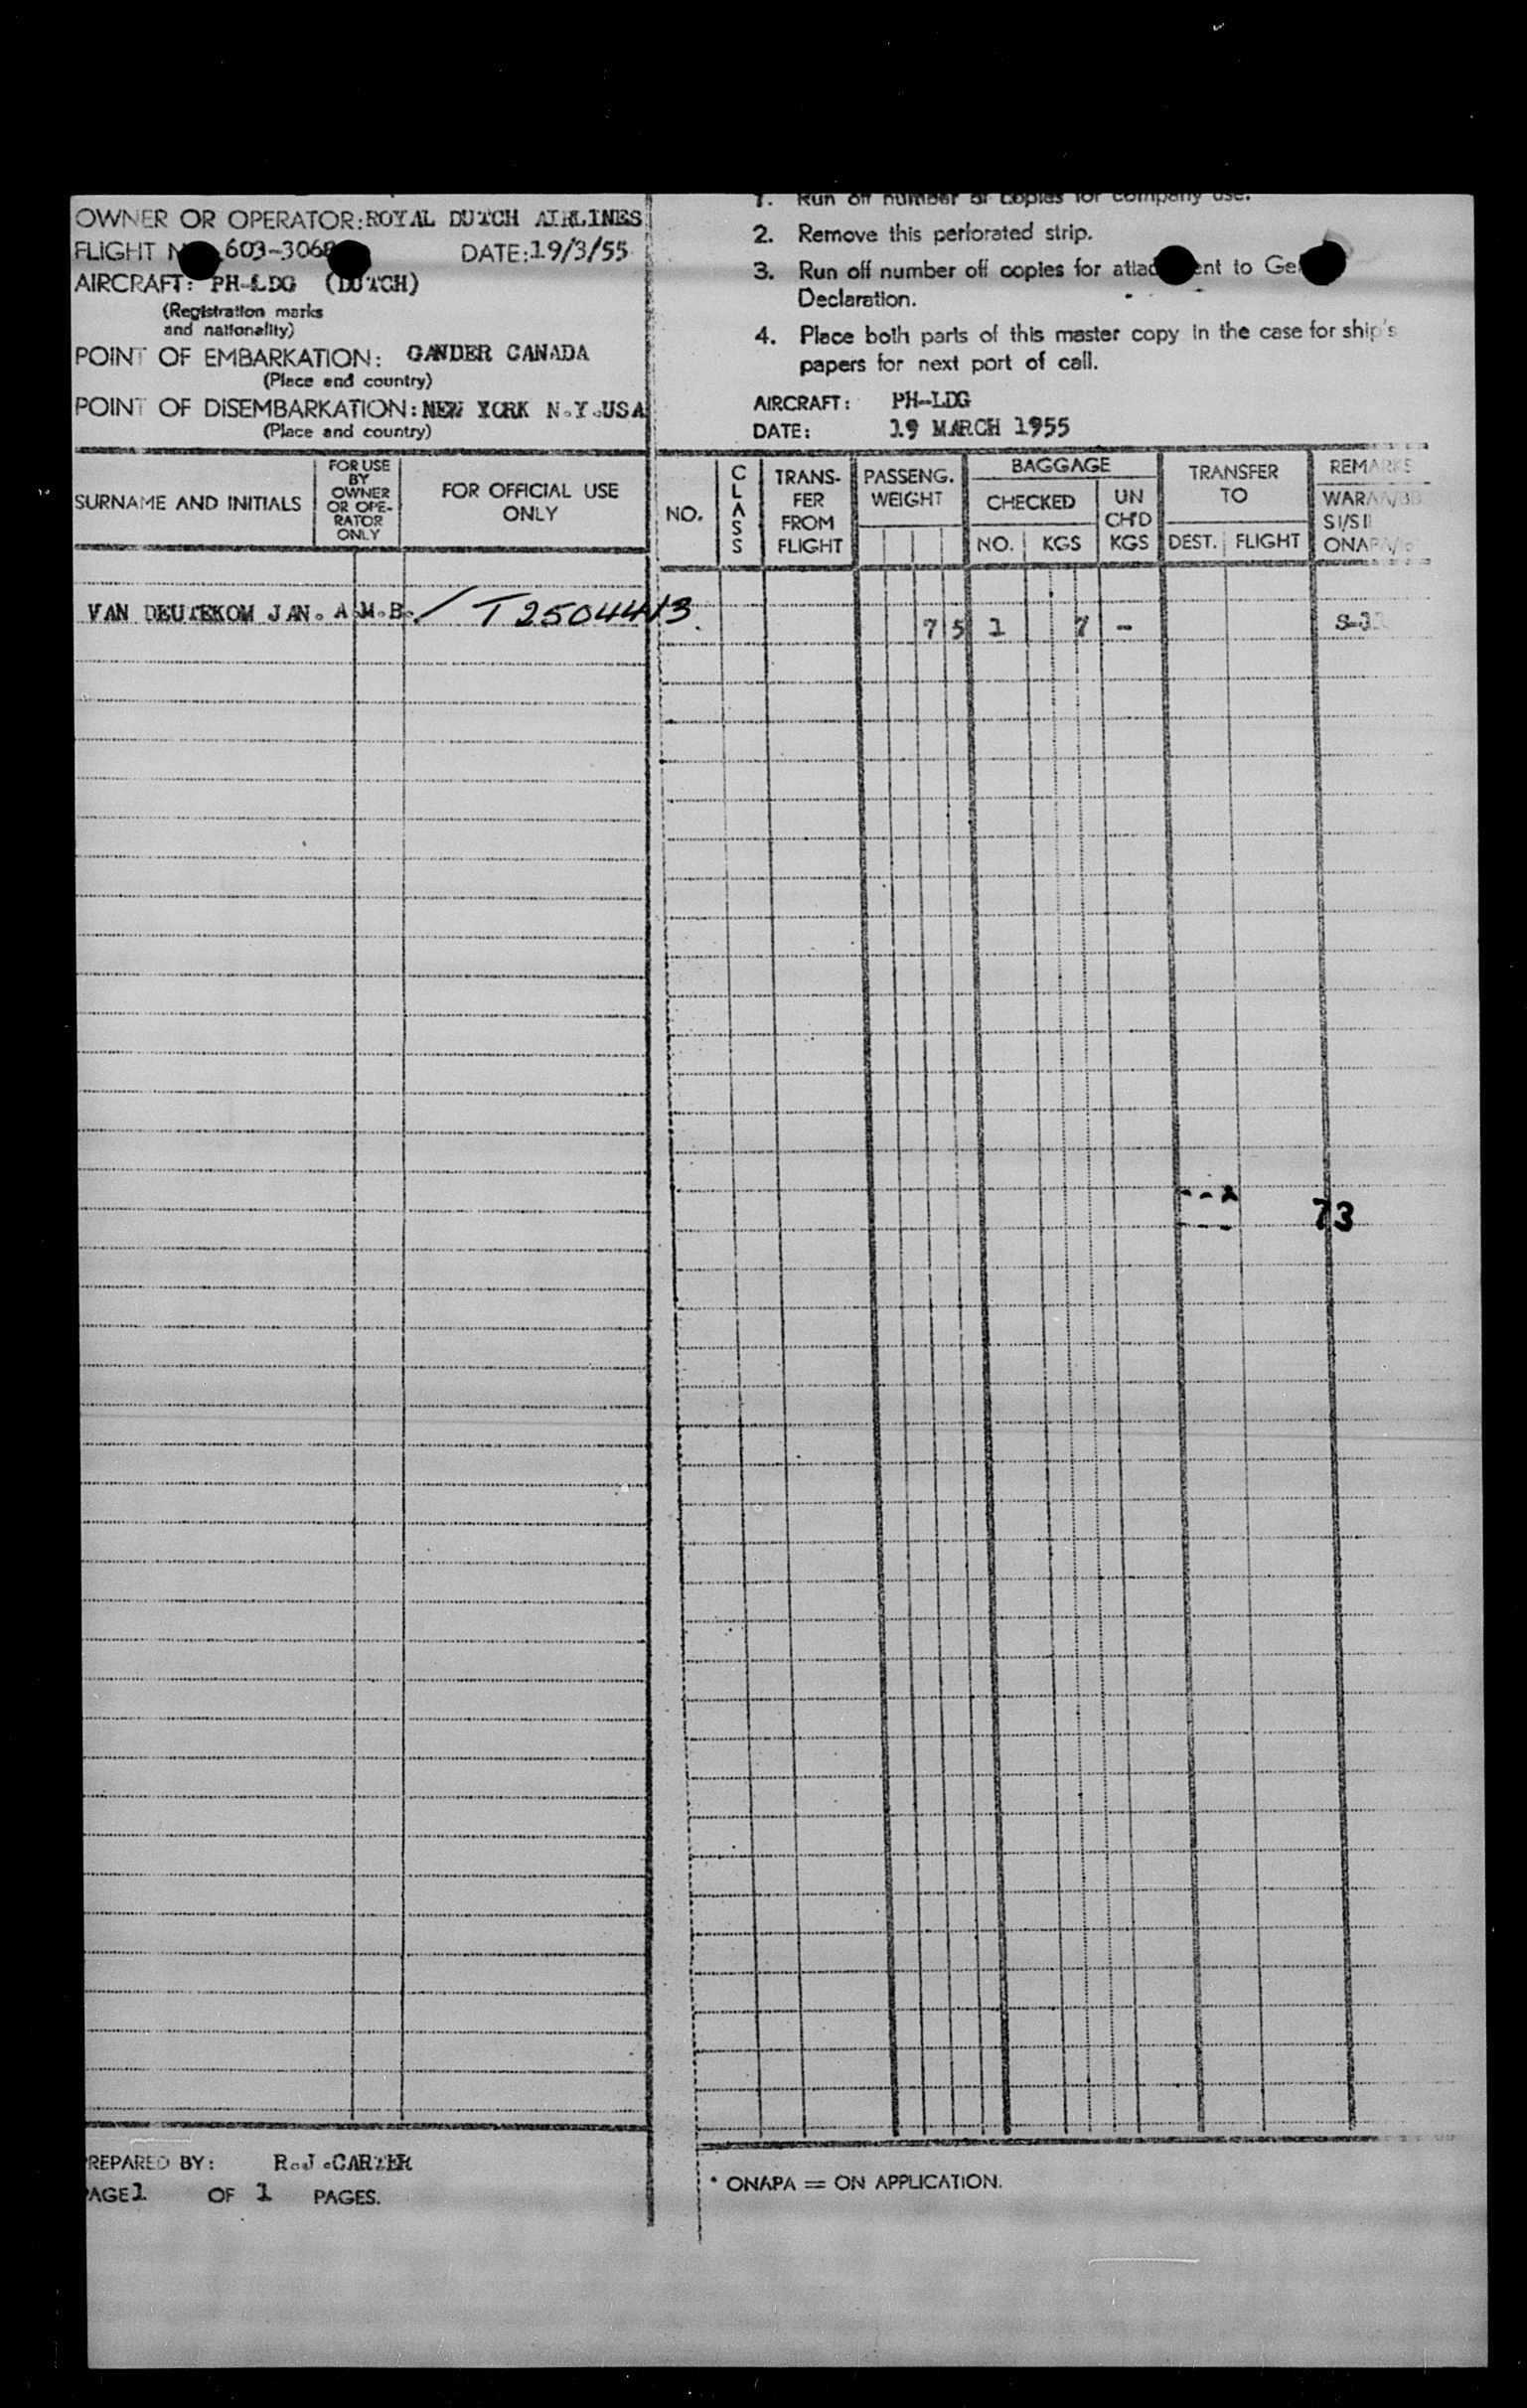 OWNER OR OPERATOR: ROYAL DUTCH AIRLINES
FLIGHT 603-3068 DATE: 19/3/55
AIRCRAFT: PH-LDG (DUTCH)
(Registration marks
and nationality)
POINT OF EMBARKATION: GANDER CANADA
(Place and country)
POINT OF DISEMBARKATION: NEW YORK N.Y.USA
(Place and country)
SURNAME AND INITIALS
FOR USE
BY
OWNER
OR OPE-
RATOR
ONLY
FOR OFFICIAL USE
ONLY
VAN DEUTEKOM JAN. A.M.B. / T2504413
PREPARED BY: R.J.CARTER
PAGE 1 OF 1 PAGES.
1. Run off number of copies for company use.
2. Remove this perforated strip.
3. Run off number off copies for to
Declaration.
4. Place both parts of this master copy in the case for ship's
papers for next port of call.
AIRCRAFT: PH-LDG
DATE: 19 MARCH 1955
NO.
CLASS
TRANS-
FER
FROM
FLIGHT
PASSENG.
WEIGHT
BAGGAGE
CHECKED
NO. KGS
UN
CH'D
KGS
TRANSFER
TO
DEST. FLIGHT
REMARKS
SI/SII
75 1 7 -
73
* ONAPA = ON APPLICATION.